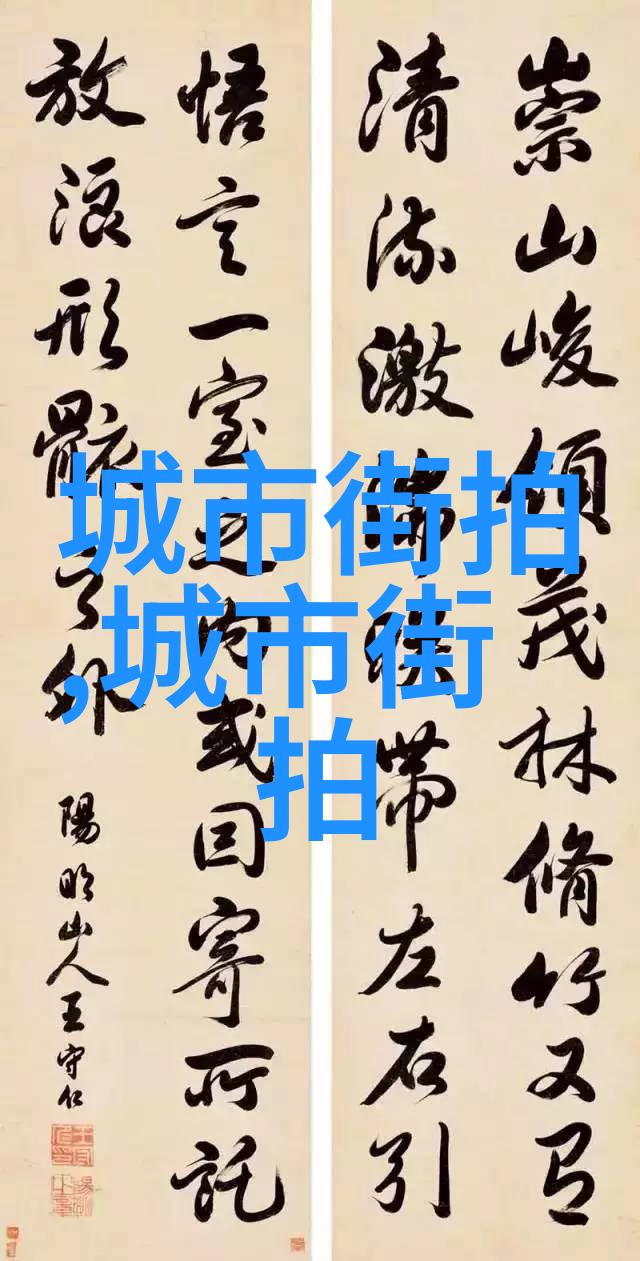 崇山峻領茂林脩竹又有
清流激湍暎帶左右引
悟言一室之内或因寄所託
放浪形骸之外
陽明山人王守仁
城市街拍
,城市街
拍